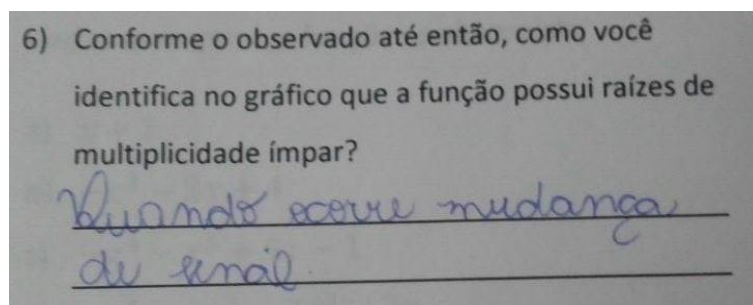 6) Conforme o observado até então, como você
identifica no gráfico que a função possui raízes de
multiplicidade ímpar?
Quando ocorre mudança
de sinal.